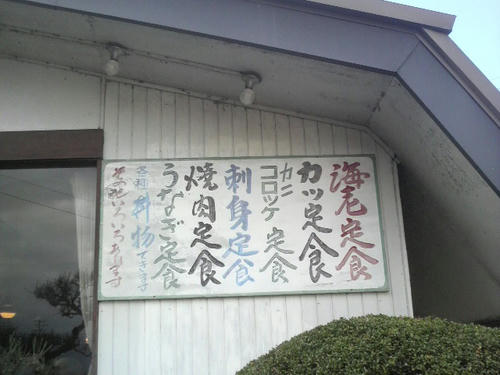 海老定食
カツ定食
カニコロッケ定食
刺身定食
焼肉定食
うなぎ定食
各種丼物できます
その他いろいろあります